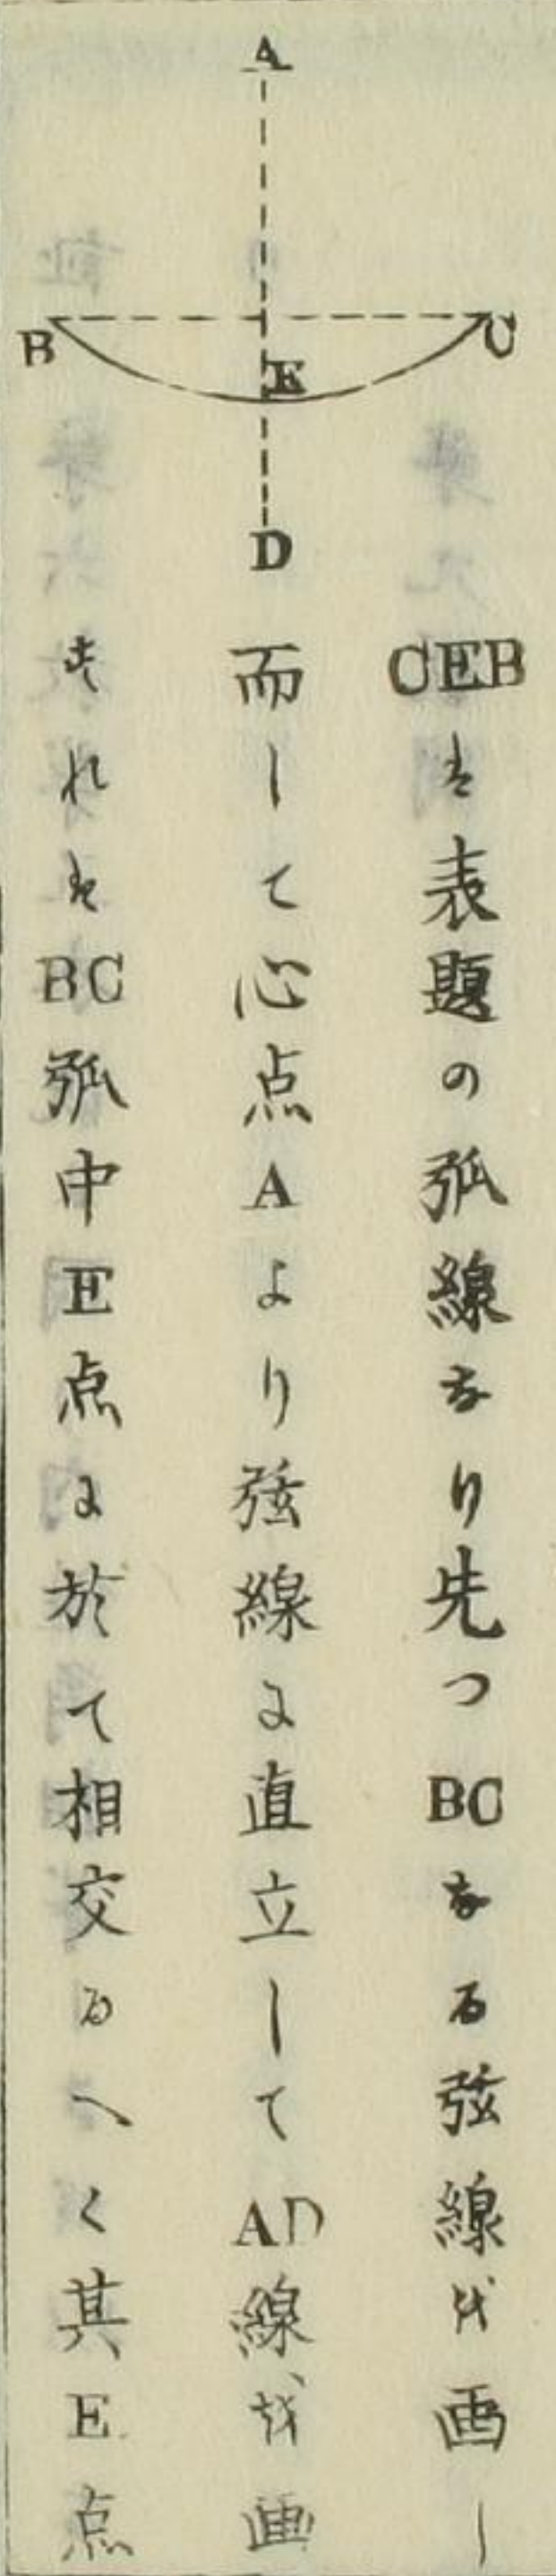 A
B
C
E
D
CEBは表題の弧線なり先つBCなる弦線を画し
而して心点Aより弦線に直立してAD線を画
すれはBC弧中E点に於て相交るへく其E点